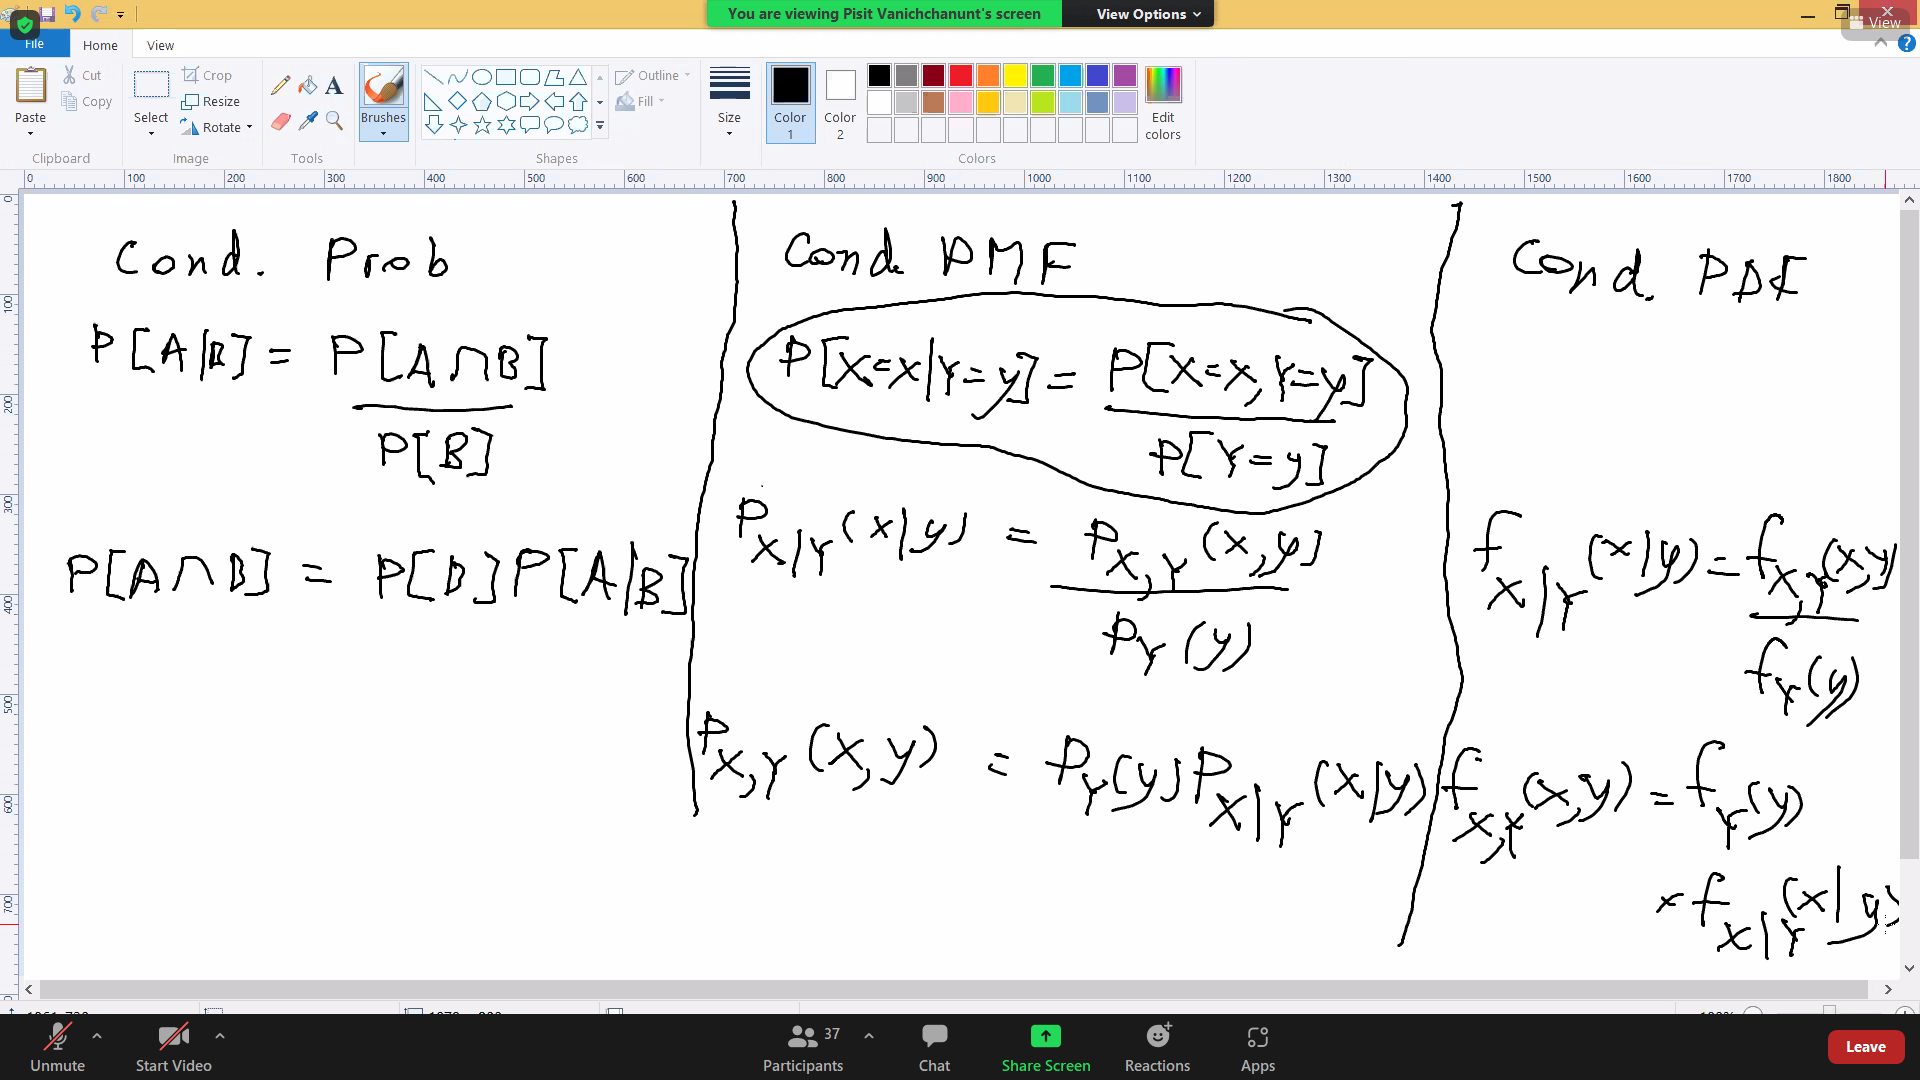 You are viewing Pisit Vanichchanunt's screen
View Options
View
File
Home
View
Paste
Cut
Copy
Clipboard
Select
Crop
Resize
Rotate
Image
Tools
Brushes
Shapes
Outline
Fill
Size
Color
1
Color
2
Edit
colors
Colors
0 100 200 300 400 500 600 700 800 900 1000 1100 1200 1300 1400 1500 1600 1700 1800
0
100
200
300
400
500
600
700
Cond. Prob
P[A|B] = P[A∩B]
P[B]
P[A∩B] = P[B]P[A|B]
Cond. PMF
P[X=x|Y=y] = P[X=x, Y=y]
P[Y=y]
P X|Y (x|y) = P X,Y (x,y)
P Y (y)
P X,Y (x,y) = P Y (y) P X|Y (x|y)
Cond. PDF
f X|Y (x|y) = f X,Y (x,y)
f Y (y)
f X,Y (x,y) = f Y (y)
× f X|Y (x|y)
Unmute
Start Video
37
Participants
Chat
Share Screen
Reactions
Apps
Leave